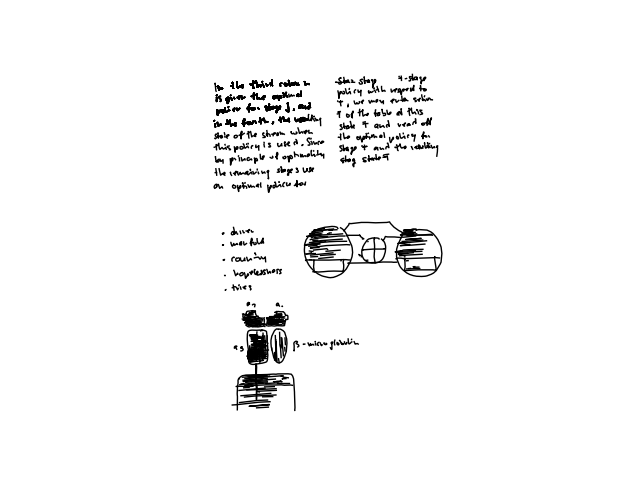 In the third column
is given the optimal
policy for stage j, and
in the fourth, the resulting
state of the stream when
this policy is used. Since
by principle of optimality
the remaining stages use
an optimal policy for
stage 4-stage
policy with regard to
4, we may enter section
4 of the table at this
state 4 and read off
the optimal policy for
stage 4 and the resulting
stag state
• driver
• manifold
• country
• hopelessness
• tires
a2 a1
a3 β-microglobulin